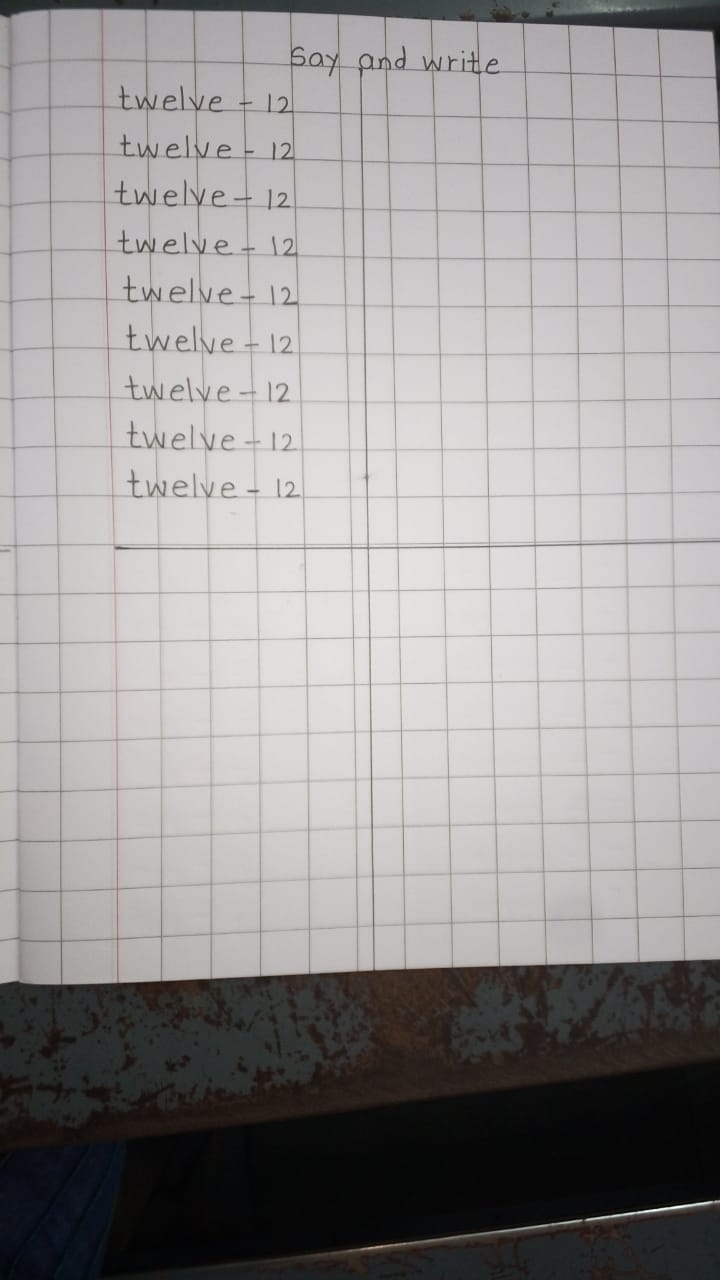 Say and write
twelve - 12
twelve - 12
twelve - 12
twelve - 12
twelve - 12
twelve - 12
twelve - 12
twelve - 12
twelve - 12